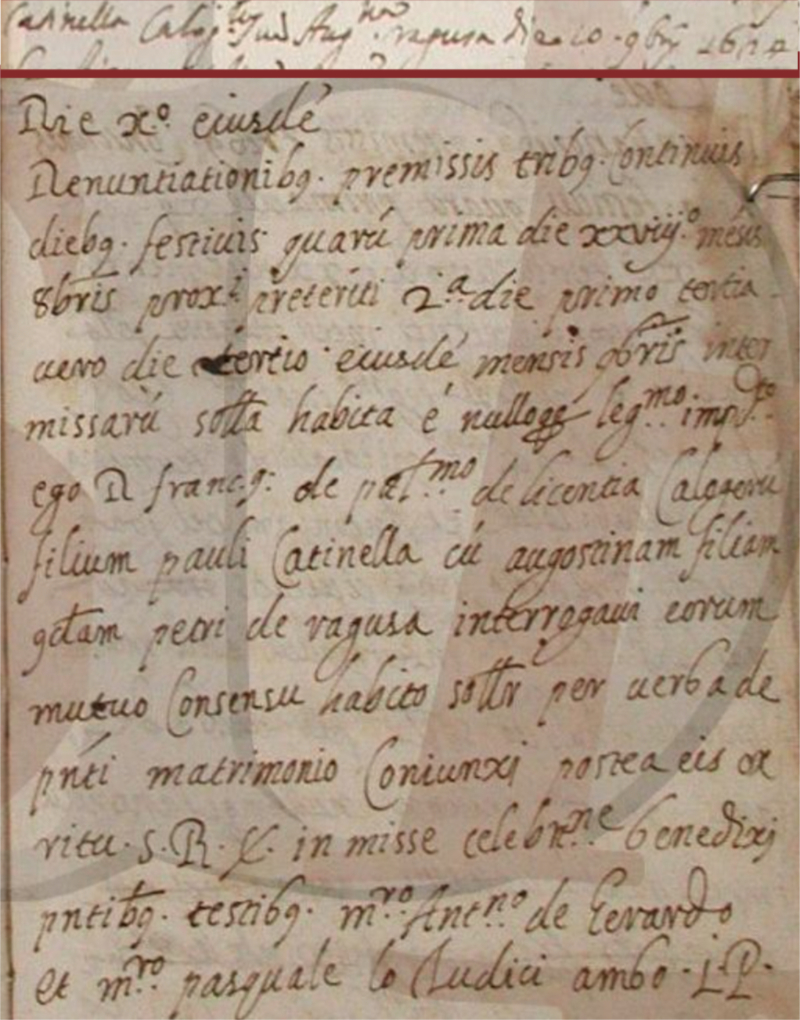 Catinella Calog.ro cū Aug.na ragusa die 10 9bris 1624
Die xº. eiusdé
Denuntiationibq. premissis tribq. Continuis
diebq. festiuis quarú prima die xxviijº mésis
8bris prox.i preteriti 2.a die primo tertia
uero die tertio eiusdé mensis 9bris inter
missarú sollá habita é nulloqe leg.mo imp.to
ego D franc.q. de pal.mo de licentia Calogerú
filium pauli Catinella cú augostinam filiam
qdam petri de ragusa interrogaui eorum
mutuo Consensu habito sollr per uerba de
pnti matrimonio Coniunxi postea eis ex
ritu. S. R. E. in misse celebr.ne benedixi
pntibq. testibq. m.ro Ant.no de Gerardo
et m.ro pasquale lo Iudici ambo. I. P.